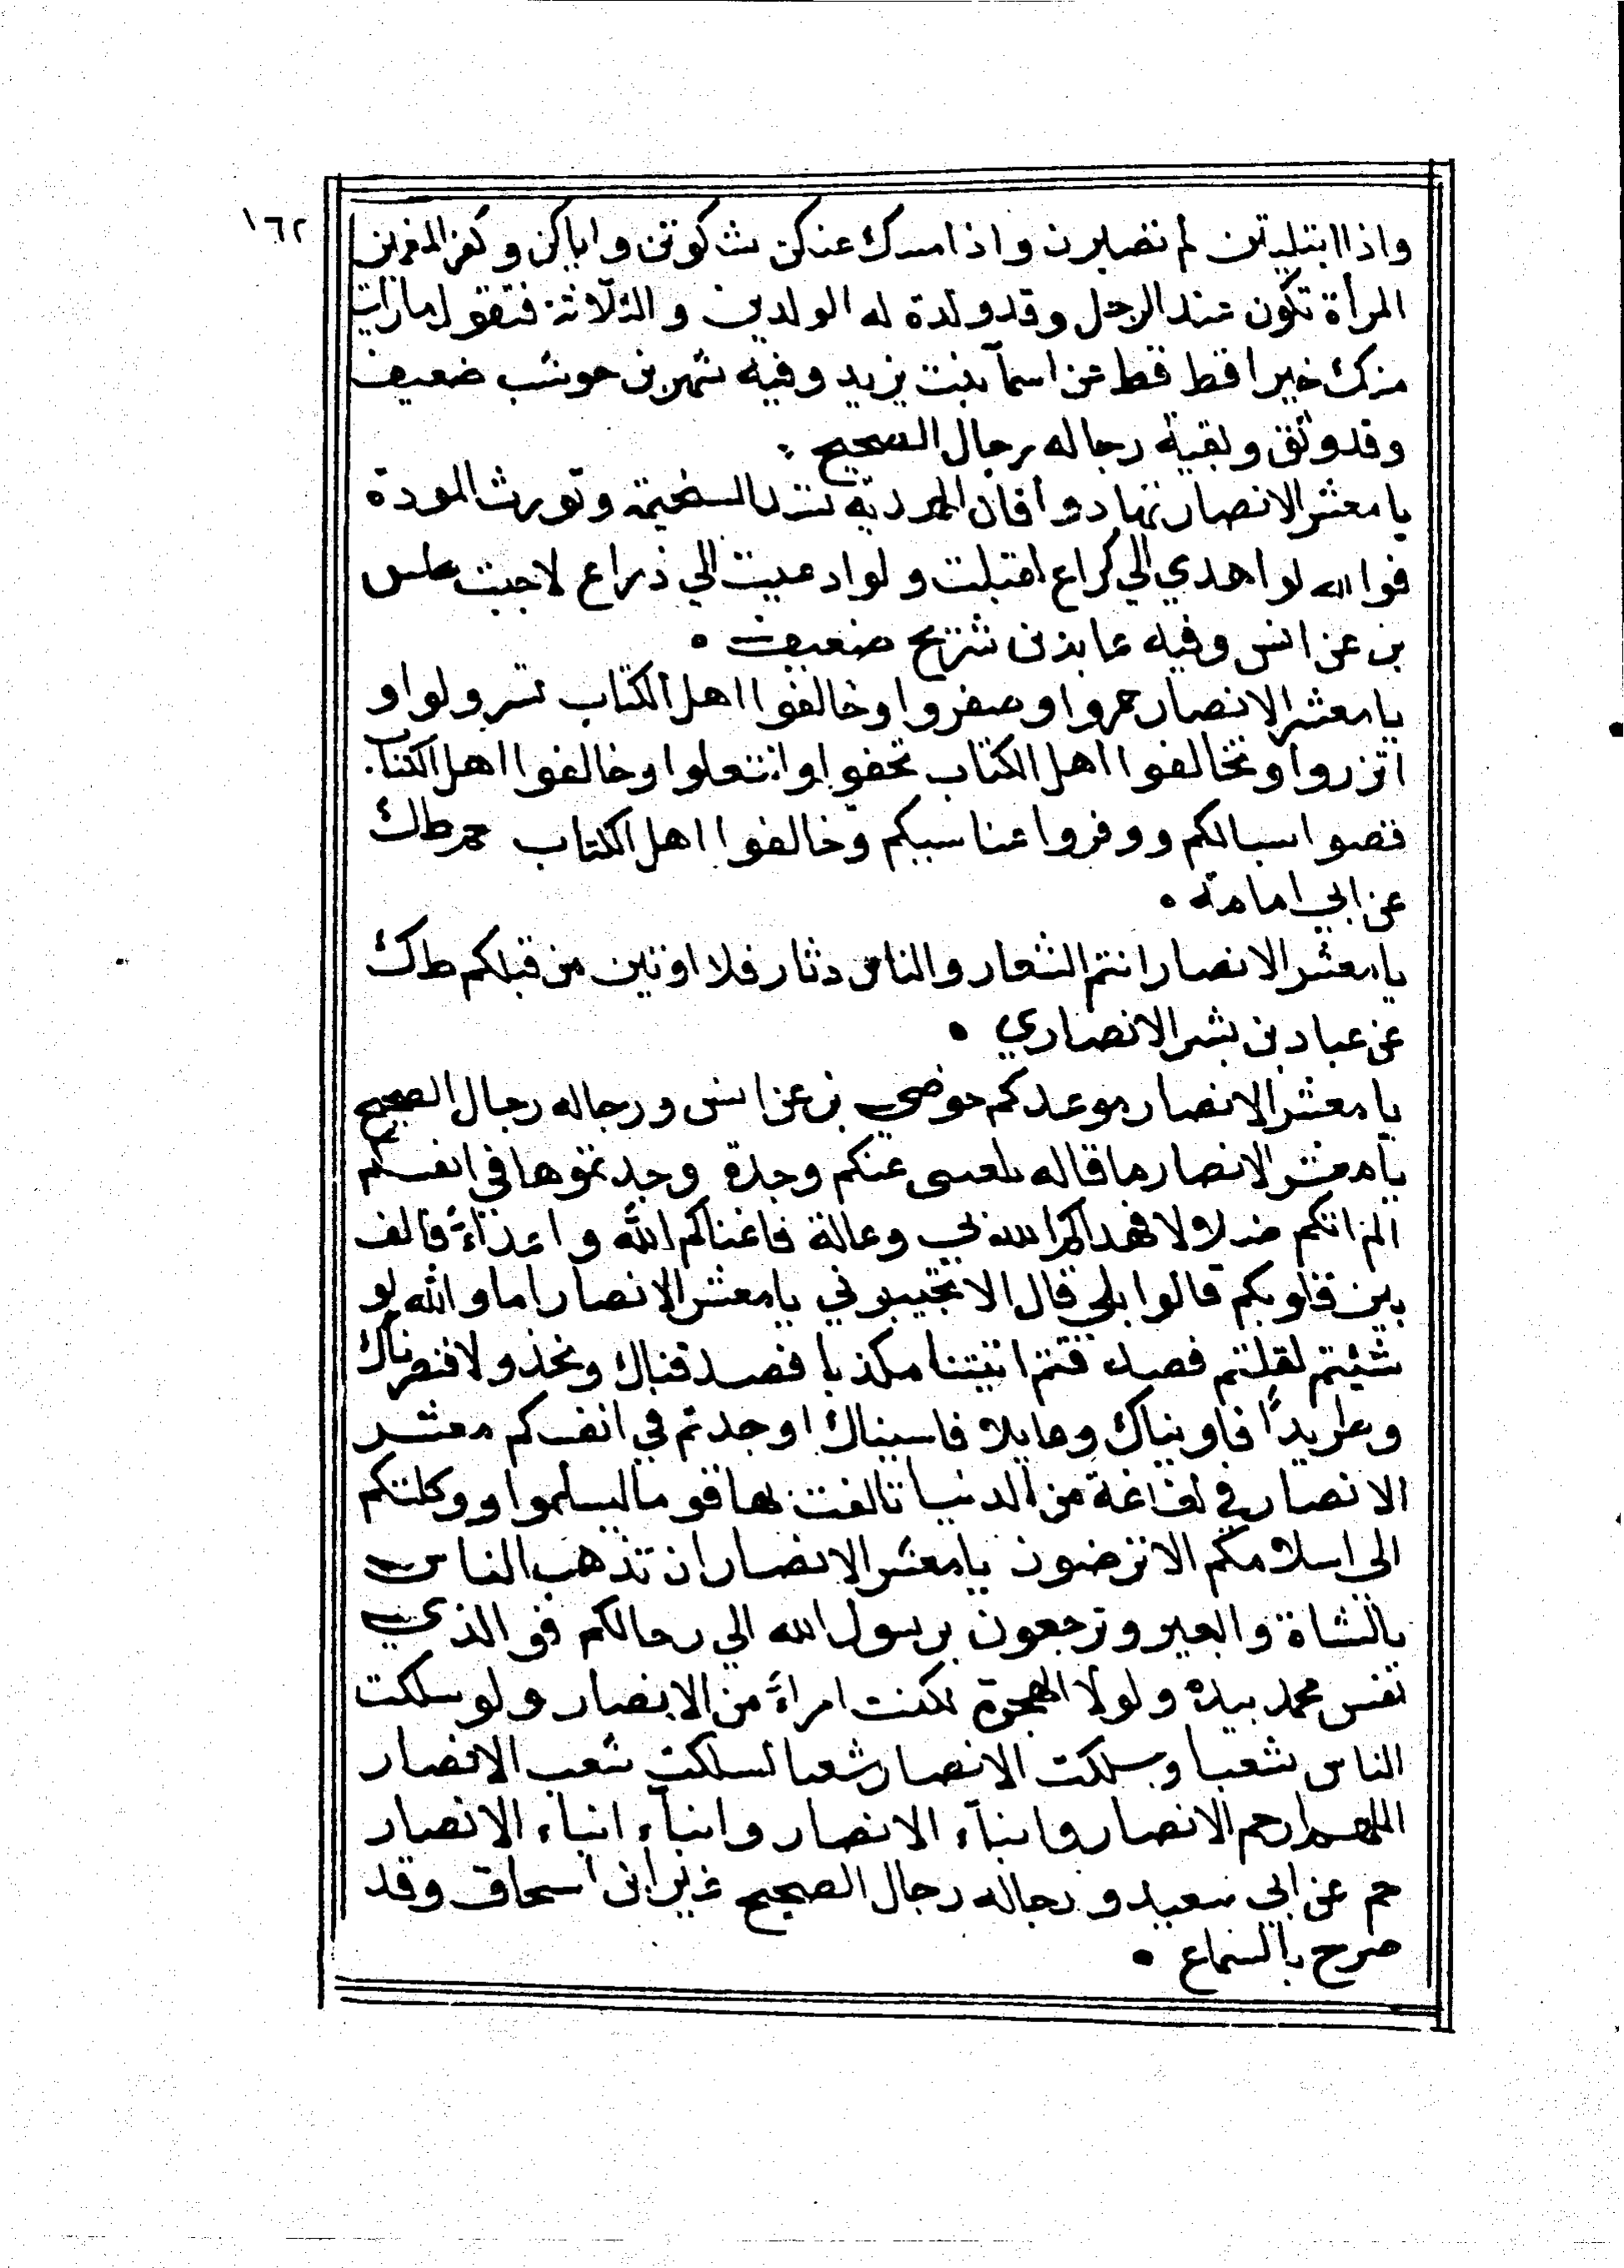 ١٦٢
واذا ابتليتن لم تصبرن واذا امسك عنكن شكوتن واياكن وكفر المنعمين
المرأة تكون عند الرجل وقد ولدة له الولدين والثلاثة فتقول ما رايت
منك خيرا قط قط عن اسمآ بنت يزيد وفيه شهر بن حوشب ضعيف
وقد وثق وبقية رجاله رجال الصحيح
يا معشر الانصار تهادوا فان الهدية تسل السخيمة وتورث المودة
فوالله لو اهدي الي كراع لقبلت ولو ادعيت الي ذراع لاجبت طس
بز عن انس وفيه عايذ بن شريح ضعيف
يا معشر الانصار حمروا وصفروا وخالفوا اهل الكتاب تسرولوا و
اتزروا وتخالفوا اهل الكتاب تخفوا وانتعلوا وخالفوا اهل الكتاب
قصوا سبالكم ووفروا عناسبكم وخالفوا اهل الكتاب حم ط ك
عن ابي امامة
يا معشر الانصار انتم الشعار والناس دثار فلا اوتين من قبلكم ط ك
عن عباد بن بشر الانصاري
يا معشر الانصار موعدكم حوضي بز عن انس ورجاله رجال الصحيح
يا معشر الانصار ما قاله بلغنى عنكم وجدة وجدتموها في انفسكم
الم اتكم ضلالا فهداكم الله بي وعالة فاغناكم الله واعدآءً فالف
بين قلوبكم قالوا بلى قال الا تجيبوني يا معشر الانصار اما والله لو
شئيتم لقلتم فصدقتم اتيتنا مكذبا فصدقناك ومخذولا فنصرناك
وطريدًا فاويناك وعايلا فاسيناك اوجدتم في انفسكم معشر
الانصار في لعاعة من الدنيا تالفت بها قوما ليسلموا ووكلتكم
الى اسلامكم الا ترضون يا معشر الانصار ان تذهب الناس
بالشاة والبعير وترجعون برسول الله الي رحالكم فوالذي
نفس محمد بيده ولولا الهجرة لكنت امرأً من الانصار ولو سلكت
الناس شعبا وسلكت الانصار شعبا لسلكت شعب الانصار
اللهم ارحم الانصار وابنآء الانصار وابنآء ابناء الانصار
حم عن ابي سعيد ورجاله رجال الصحيح غير ابن اسحاق وقد
صرح بالسماع